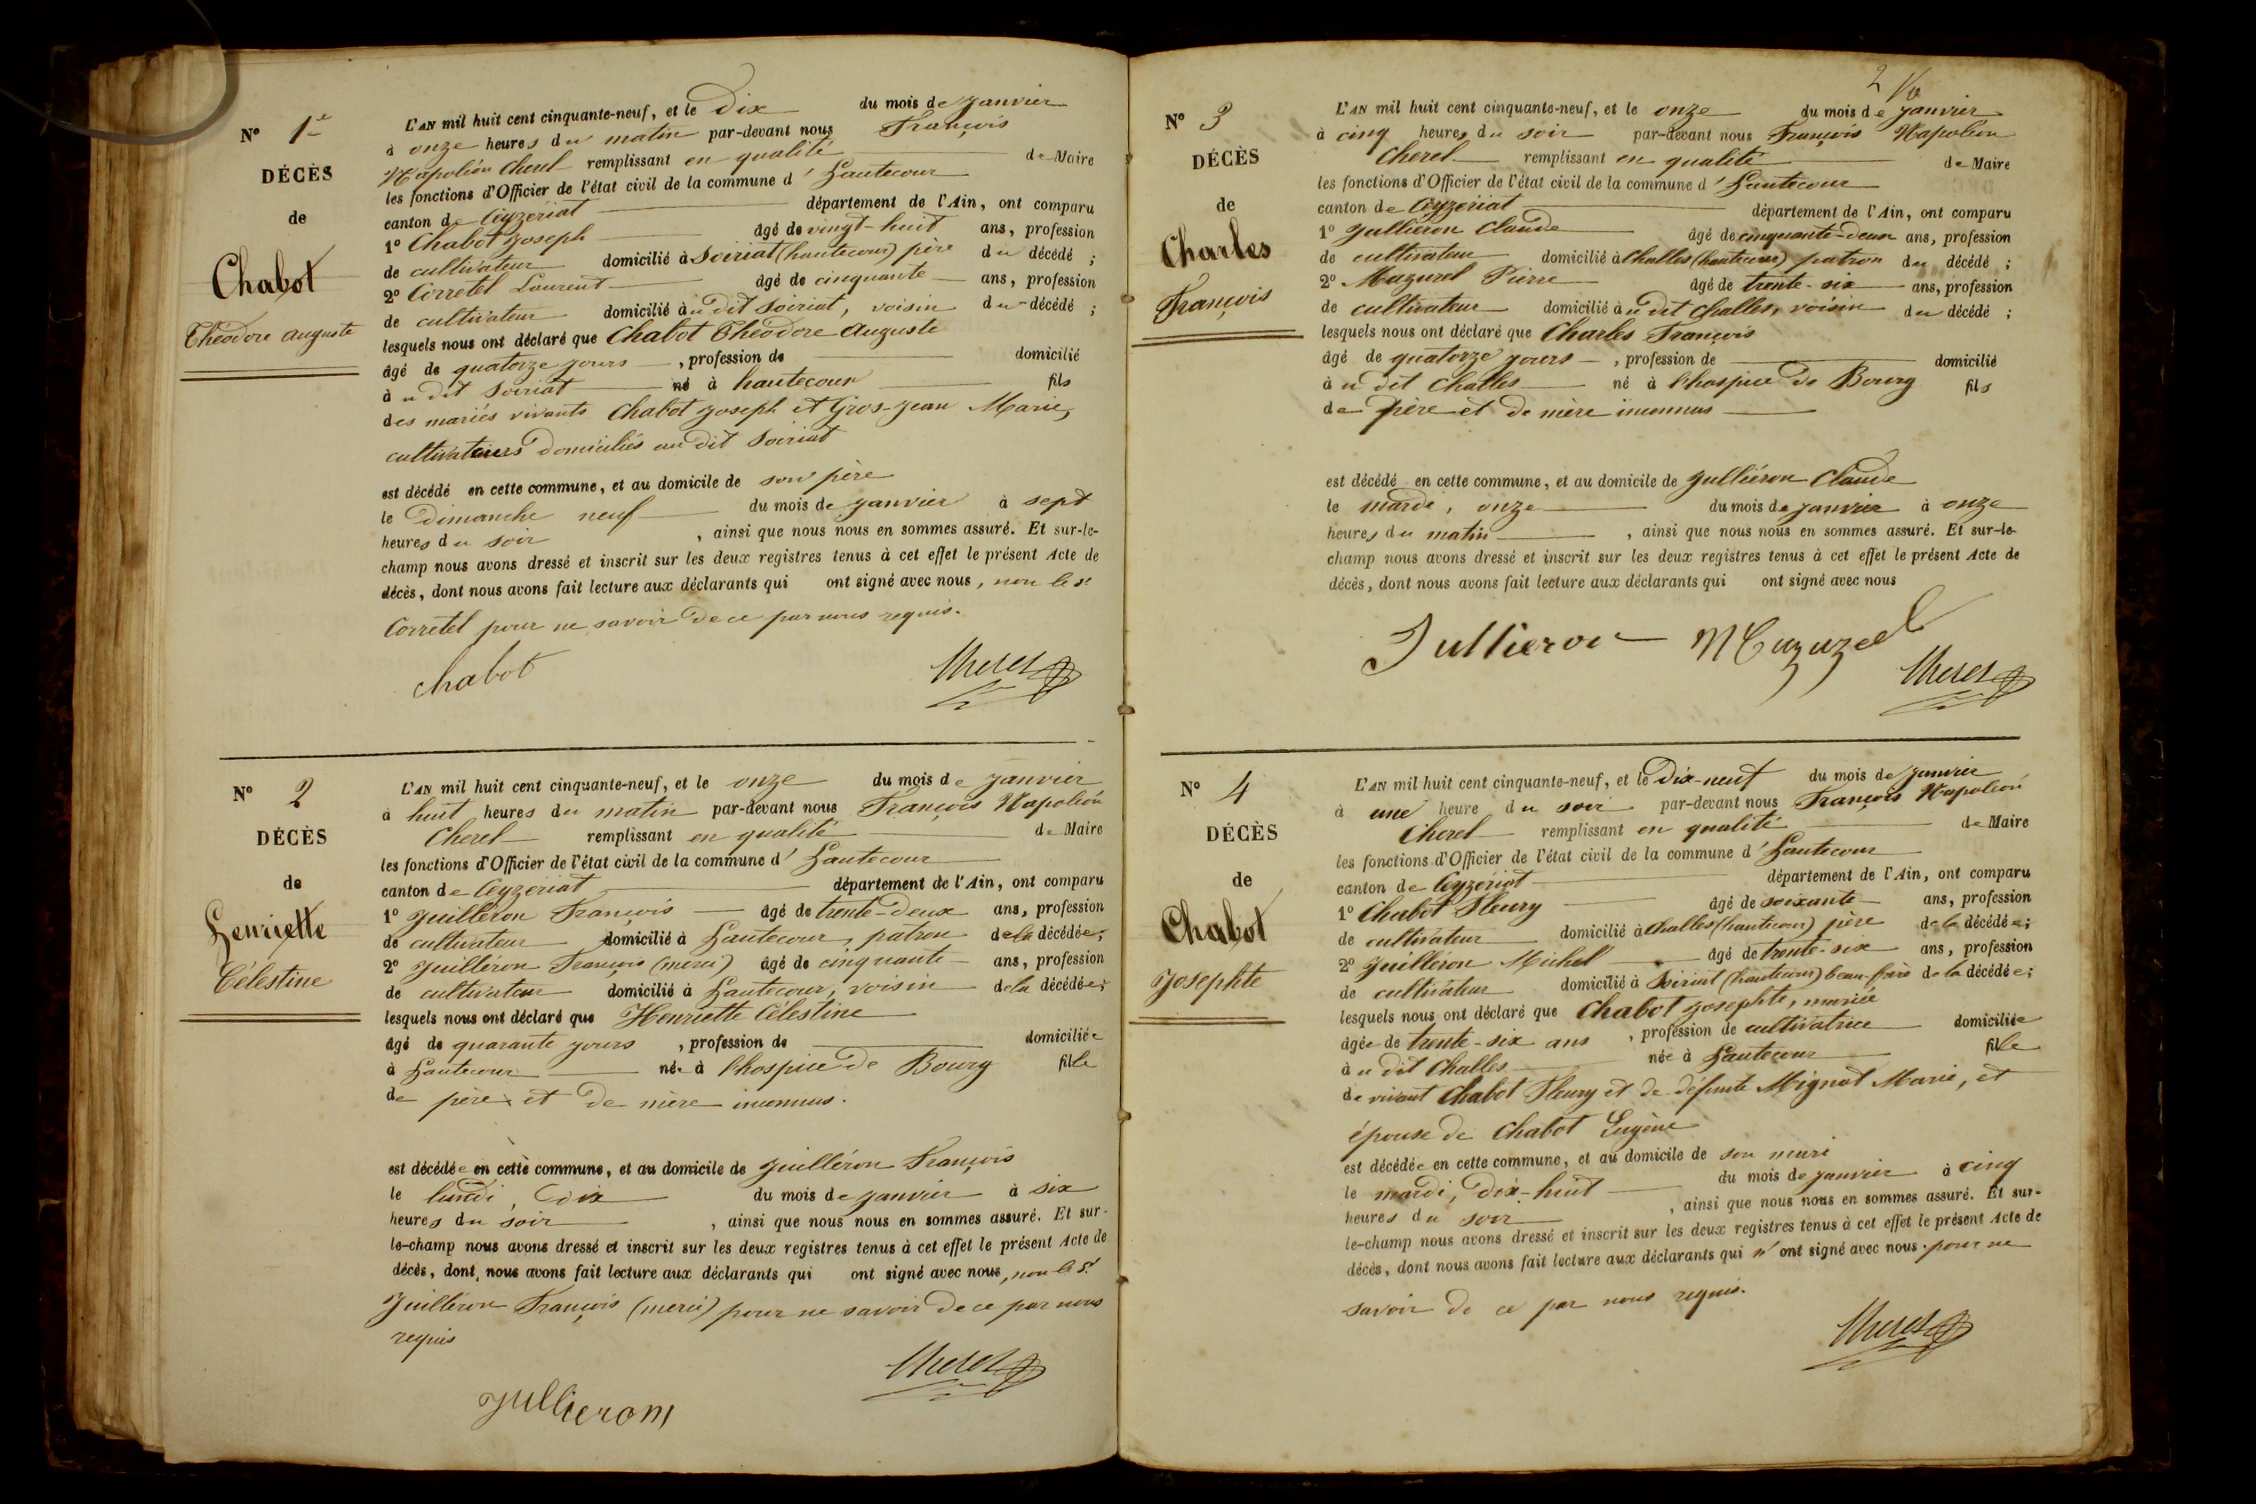 N° 1er
DÉCÈS
de
Chabot
Théodore auguste
L'AN mil huit cent cinquante-neuf, et le Dix du mois de Janvier
à onze heures du matin par-devant nous François
Napoléon Cherel remplissant en qualité de Maire
les fonctions d'Officier de l'état civil de la commune d'hautecour
canton de Ceyzeriat département de l'Ain, ont comparu
1° Chabot Joseph âgé de vingt-huit ans, profession
de cultivateur domicilié à Soiriat (hautecour) père du décédé ;
2° Corretel Laurent âgé de cinquante ans, profession
de cultivateur domicilié audit Soiriat, voisin du décédé ;
lesquels nous ont déclaré que Chabot Théodore Auguste
âgé de quatorze jours, profession de domicilié
audit Soiriat né à hautecour fils
des mariés vivants Chabot Joseph et Gros-Jean Marie,
cultivateurs domiciliés audit Soiriat
est décédé en cette commune, et au domicile de son père
le Dimanche neuf du mois de janvier à sept
heures du soir, ainsi que nous nous en sommes assuré. Et sur-le-
champ nous avons dressé et inscrit sur les deux registres tenus à cet effet le présent Acte de
décès, dont nous avons fait lecture aux déclarants qui ont signé avec nous, non le Sr
Corretel pour ne savoir de ce par nous requis.
chabot Cherel
N° 2
DÉCÈS
de
henriette
Célestine
L'AN mil huit cent cinquante-neuf, et le onze du mois de janvier
à huit heures du matin par-devant nous François Napoléon
Cherel remplissant en qualité de Maire
les fonctions d'Officier de l'état civil de la commune d'hautecour
canton de Ceyzeriat département de l'Ain, ont comparu
1° Juilléron François âgé de trente-deux ans, profession
de cultivateur domicilié à hautecour, patron de la décédée;
2° Juilléron François (merci) âgé de cinquante ans, profession
de cultivateur domicilié à hautecour, voisin de la décédée;
lesquels nous ont déclaré que Henriette Célestine
âgé de quarante jours, profession de domiciliée
à hautecour née à l'hospice de Bourg fille
de père et de mère inconnus.
est décédée en cette commune, et au domicile de Juilléron François
le lundi, dix du mois de janvier à six
heures du soir, ainsi que nous nous en sommes assuré. Et sur-
le-champ nous avons dressé et inscrit sur les deux registres tenus à cet effet le présent Acte de
décès, dont nous avons fait lecture aux déclarants qui ont signé avec nous, non le Sr
Juilléron François (merci) pour ne savoir de ce par nous
requis
Cherel
Jullieron
2
N° 3
DÉCÈS
de
Charles
François
L'AN mil huit cent cinquante-neuf, et le onze du mois de janvier
à cinq heures du soir par-devant nous François Napoléon
Cherel remplissant en qualité de Maire
les fonctions d'Officier de l'état civil de la commune d'hautecour
canton de Ceyzeriat département de l'Ain, ont comparu
1° Jullieron Claude âgé de cinquante-deux ans, profession
de cultivateur domicilié à Challes (hautecour) patron du décédé ;
2° Mazurel Pierre âgé de trente-six ans, profession
de cultivateur domicilié audit Challes, voisin du décédé ;
lesquels nous ont déclaré que Charles François
âgé de quatorze jours, profession de domicilié
audit Challes né à l'hospice de Bourg fils
de père et de mère inconnus
est décédé en cette commune, et au domicile de Julliéron Claude
le mardi, onze du mois de janvier à onze
heures du matin, ainsi que nous nous en sommes assuré. Et sur-le-
champ nous avons dressé et inscrit sur les deux registres tenus à cet effet le présent Acte de
décès, dont nous avons fait lecture aux déclarants qui ont signé avec nous
Jullieron Mazurel
Cherel
N° 4
DÉCÈS
de
Chabot
Josephte
L'AN mil huit cent cinquante-neuf, et le Dix-neuf du mois de janvier
à une heure du soir par-devant nous François Napoléon
Cherel remplissant en qualité de Maire
les fonctions d'Officier de l'état civil de la commune d'hautecour
canton de Ceyzériat département de l'Ain, ont comparu
1° Chabot Fleury âgé de soixante ans, profession
de cultivateur domicilié à Challes (hautecour) père de la décédée;
2° Juilléron Michel âgé de trente-six ans, profession
de cultivateur domicilié à Soiriat (hautecour) beau-frère de la décédée;
lesquels nous ont déclaré que Chabot Josephte, mariée
âgée de trente-six ans, profession de cultivatrice domiciliée
audit Challes née à hautecour fille
de vivant Chabot Fleury et de défunte Mignot Marie, et
épouse de Chabot Eugène
est décédée en cette commune, et au domicile de son mari
le mardi, dix-huit du mois de janvier à cinq
heures du soir, ainsi que nous nous en sommes assuré. Et sur-
le-champ nous avons dressé et inscrit sur les deux registres tenus à cet effet le présent Acte de
décès, dont nous avons fait lecture aux déclarants qui n'ont signé avec nous. pour ne
savoir de ce par nous requis.
Cherel